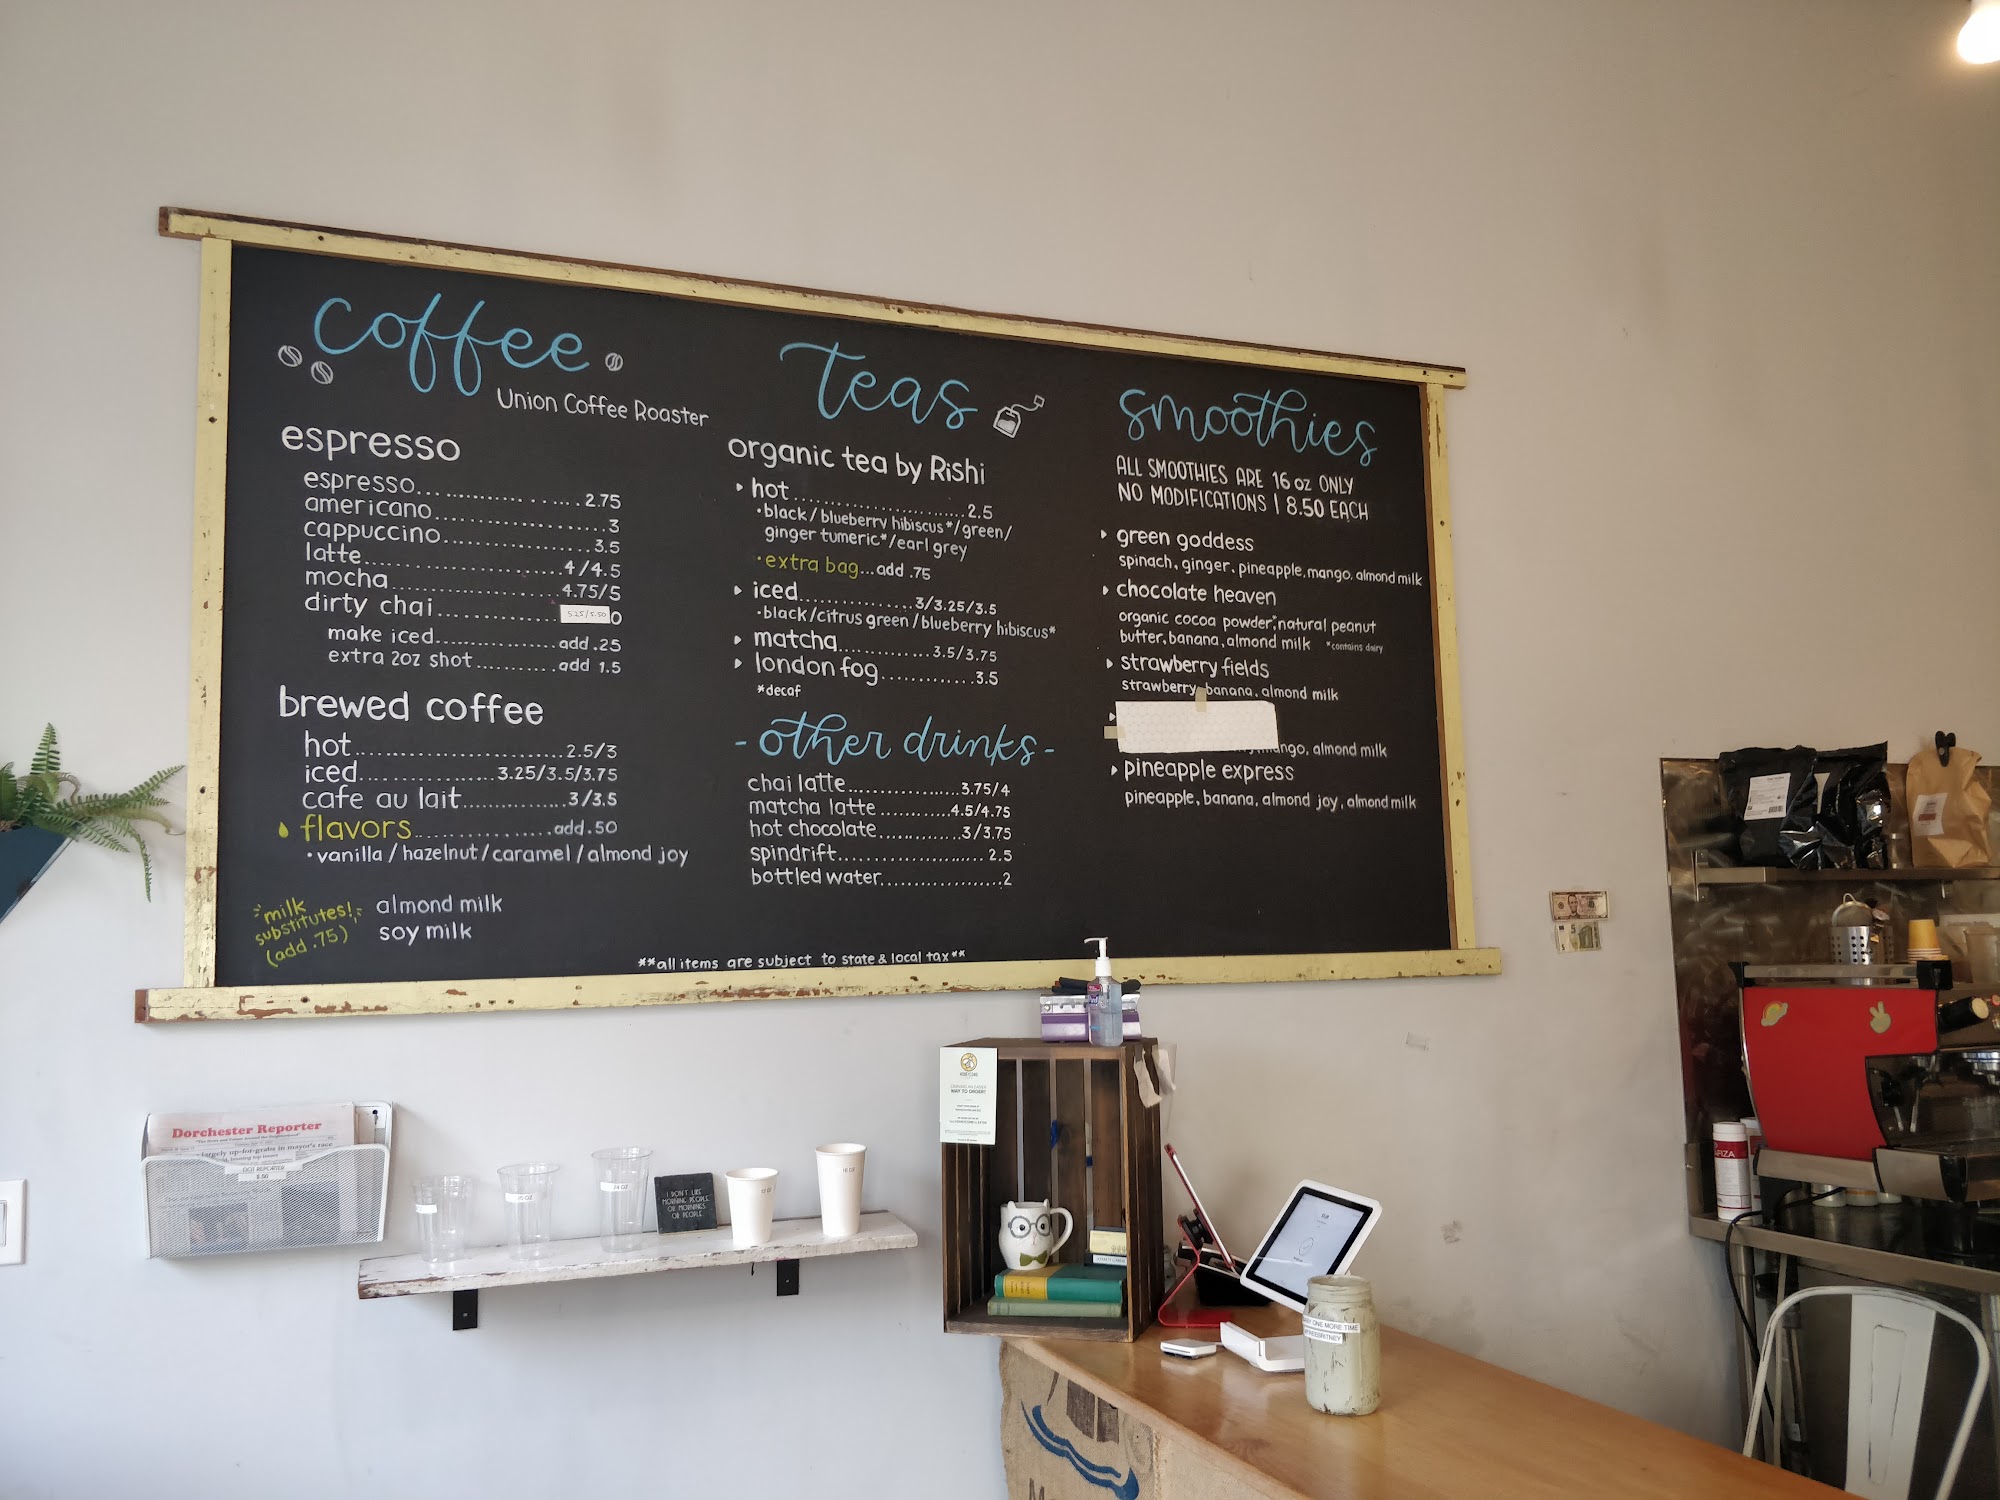 coffee
Union Coffee Roaster
espresso
espresso... ................ 2.75
americano.....................3
cappuccino..................3.5
latte........................4/4.5
mocha.....................4.75/5
dirty chai............. 5.25/5.50 0
make iced..............add .25
extra 2oz shot..........add 1.5
brewed coffee
hot..........................2.5/3
iced.................3.25/3.5/3.75
cafe au lait.............3/3.5
flavors.................add.50
•vanilla/hazelnut/caramel/almond joy
milk
substitutes!
(add .75)
almond milk
soy milk
teas
organic tea by Rishi
hot......................2.5
•black/blueberry hibiscus*/green/
ginger tumeric*/earl grey
•extra bag...add .75
iced................3/3.25/3.5
•black/citrus green/blueberry hibiscus*
matcha..............3.5/3.75
london fog.............3.5
*decaf
-other drinks-
chai latte.................3.75/4
matcha latte...........4.5/4.75
hot chocolate.............3/3.75
spindrift....................... 2.5
bottled water...................2
smoothies
ALL SMOOTHIES ARE 16 oz ONLY
NO MODIFICATIONS | 8.50 EACH
green goddess
spinach, ginger, pineapple, mango, almond milk
chocolate heaven
organic cocoa powder*, natural peanut
butter, banana, almond milk *contains dairy
strawberry fields
strawberry, banana, almond milk
mango, almond milk
pineapple express
pineapple, banana, almond joy, almond milk
**all items are subject to state & local tax**
Dorchester Reporter
"The News and Values Around the Neighborhood"
largely up-for-grabs in mayor's race
DOT REPORTER
$.50
20 OZ
24 OZ
I DON'T LIKE
MORNING PEOPLE.
OR MORNINGS.
OR PEOPLE.
12 OZ
16 OZ
WAY TO ORDER!
ONE MORE TIME
#FREEBRITNEY